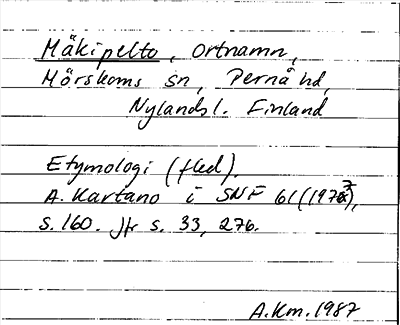 Mäkipelto, Ortnamn,
Mörskoms sn, Pernå hd,
Nylandsl. Finland
Etymologi (fled).
A. Kartano i SNF 61 (1973),
s. 160. Jfr s. 33, 276.
A.Km. 1987